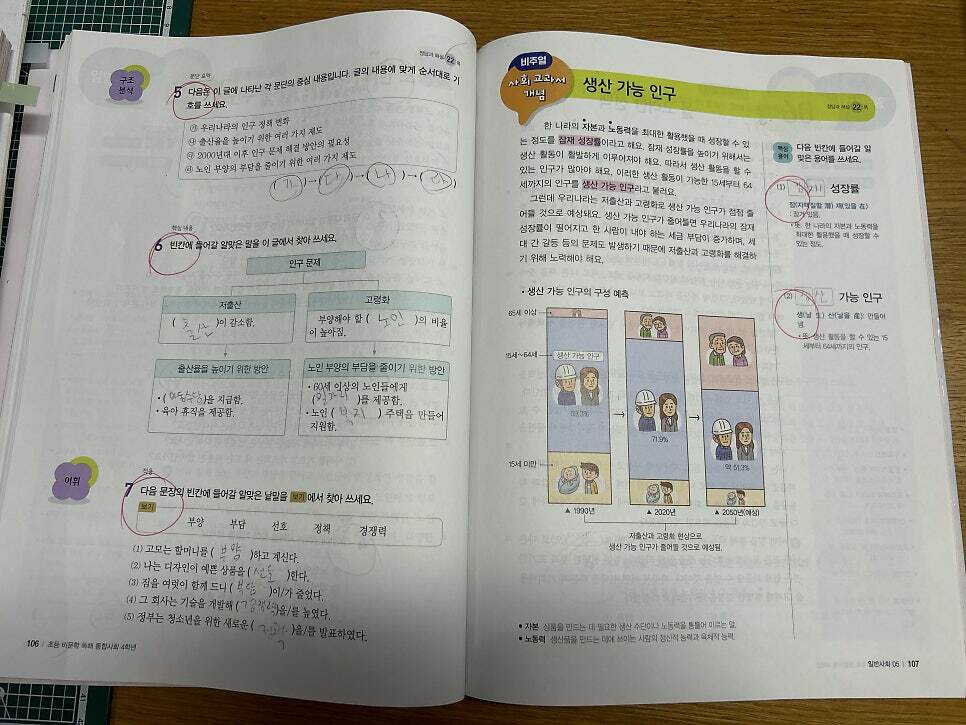 정답과 해설 22 쪽
구조 분석
문단 요약
5 다음은 이 글에 나타난 각 문단의 중심 내용입니다. 글의 내용에 맞게 순서대로 기
호를 쓰세요.
㉮ 우리나라의 인구 정책 변화
㉯ 출산율을 높이기 위한 여러 가지 제도
㉰ 2000년대 이후 인구 문제 해결 방안의 필요성
㉱ 노인 부양의 부담을 줄이기 위한 여러 가지 제도
( 가 ) → ( 다 ) → ( 나 ) → ( 라 )
핵심 내용
6 빈칸에 들어갈 알맞은 말을 이 글에서 찾아 쓰세요.
인구 문제
저출산
( 출산 )이 감소함.
고령화
부양해야 할 ( 노인 )의 비율
이 높아짐.
출산율을 높이기 위한 방안
• ( 아동수당 )을 지급함.
• 육아 휴직을 제공함.
노인 부양의 부담을 줄이기 위한 방안
• 60세 이상의 노인들에게
( 일자리 )를 제공함.
• 노인 ( 복지 ) 주택을 만들어
지원함.
어휘
적용
7 다음 문장의 빈칸에 들어갈 알맞은 낱말을 보기 에서 찾아 쓰세요.
보기
부양 부담 선호 정책 경쟁력
(1) 고모는 할머니를 ( 부양 )하고 계신다.
(2) 나는 디자인이 예쁜 상품을 ( 선호 )한다.
(3) 짐을 여럿이 함께 드니 ( 부담 )이/가 줄었다.
(4) 그 회사는 기술을 개발해 ( 경쟁력 )을/를 높였다.
(5) 정부는 청소년을 위한 새로운 ( 정책 )을/를 발표하였다.
106 초등 비문학 독해 통합사회 4학년
비주얼
사회 교과서
개념
생산 가능 인구
정답과 해설 22 쪽
한 나라의 자본과 노동력을 최대한 활용했을 때 성장할 수 있
는 정도를 잠재 성장률이라고 해요. 잠재 성장률을 높이기 위해서는
생산 활동이 활발하게 이루어져야 해요. 따라서 생산 활동을 할 수
있는 인구가 많아야 해요. 이러한 생산 활동이 가능한 15세부터 64
세까지의 인구를 생산 가능 인구라고 불러요.
그런데 우리나라는 저출산과 고령화로 생산 가능 인구가 점점 줄
어들 것으로 예상돼요. 생산 가능 인구가 줄어들면 우리나라의 잠재
성장률이 떨어지고 한 사람이 내야 하는 세금 부담이 증가하며, 세
대 간 갈등 등의 문제도 발생하기 때문에 저출산과 고령화를 해결하
기 위해 노력해야 해요.
• 생산 가능 인구의 구성 예측
65세 이상
15세~64세
생산 가능 인구
69.3%
15세 미만
▲ 1990년
71.9%
▲ 2020년
약 51.3%
▲ 2050년(예상)
저출산과 고령화 현상으로
생산 가능 인구가 줄어들 것으로 예상됨.
• 자본 상품을 만드는 데 필요한 생산 수단이나 노동력을 통틀어 이르는 말.
• 노동력 생산품을 만드는 데에 쓰이는 사람의 정신적 능력과 육체적 능력.
핵심 용어
다음 빈칸에 들어갈 알
맞은 용어를 쓰세요.
(1) 성장률
잠(자맥질할 潛) 재(있을 在)
: 잠겨 있음.
• 뜻: 한 나라의 자본과 노동력을
최대한 활용했을 때 성장할 수
있는 정도.
(2) 생산 가능 인구
생(날 生) 산(낳을 産): 만들어
냄.
• 뜻: 생산 활동을 할 수 있는 15
세부터 64세까지의 인구.
일반사회 05 107